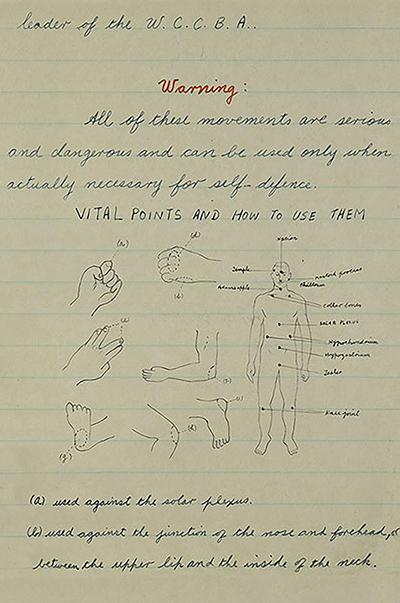 leader of the W.C.C.B.A..
Warning:
All of these movements are serious
and dangerous and can be used only when
actually necessary for self-defence.
VITAL POINTS AND HOW TO USE THEM
Nasion
(a)
(d)
Temple
mastoid process
Adams apple
Philtrum
(b)
Collar bones
SOLAR PLEXUS
Hypochondrium
Hypogastrium
Testes
Knee joint
(g)
(a) used against the solar plexus.
(b) used against the junction of the nose and forehead, or
between the upper lip and the inside of the neck.